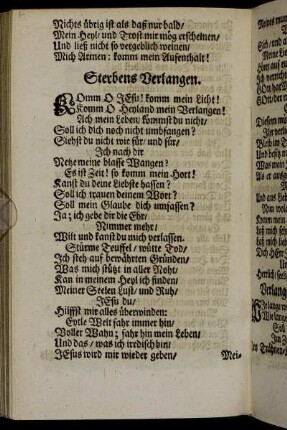 Nichts übrig ist als daß nur bald/
Mein Heyl/ und Trost mir mög erscheinen/
Und ließ nicht so vergeblich weinen/
Mich Armen: komm mein Auffenthalt!
Sterbens Verlangen.
KOmm O JEsu! komm mein Licht!
Komm O Heyland mein Verlangen!
Ach mein Leben/ kommst du nicht/
Soll ich dich noch nicht umbfangen?
Siehst du nicht wie für/ und für/
Ich nach dir
Netze meine blasse Wangen?
Es ist Zeit! so komm mein Hort!
Kanst du deine Liebste hassen?
Soll ich trauen deinem Wort?
Soll mein Glaube dich umfassen?
Ja; ich gebe dir die Ehr/
Nimmer mehr/
Wilt und kanst du mich verlassen.
Stürme Teuffel/ wütte Tod/
Ich steh auf bewährten Gründen/
Was mich stützt in aller Noht/
Kan in meinem Heyl ich finden/
Meiner Seelen Lust/ und Ruh/
JEsu du/
Hilffst mir alles überwinden:
Eytle Welt fahr immer hin/
Voller Wahn; fahr hin mein Leben/
Und das/ was ich irrdisch bin/
JEsus wird mir wieder geben/
Mei-